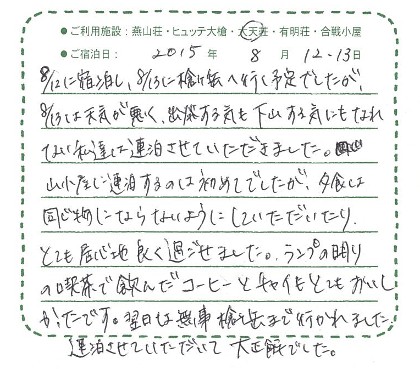 ●ご利用施設：燕山荘・ヒュッテ大槍・大天荘・有明荘・合戦小屋
●ご宿泊日： 2015年 8月 12-13日
8/12に宿泊し、8/13に槍ヶ岳へ行く予定でしたが、
8/13は天気が悪く、出発する気も下山する気にもなれ
ない私達は連泊させていただきました。
山小屋に連泊するのは初めてでしたが、夕食は
同じ物にならないようにしていただいたり、
とても居心地良く過ごせました。ランプの明り
の喫茶で飲んだコーヒーとチャイもとてもおいし
かったです。翌日は無事槍ヶ岳まで行かれました。
連泊させていただいて大正解でした。